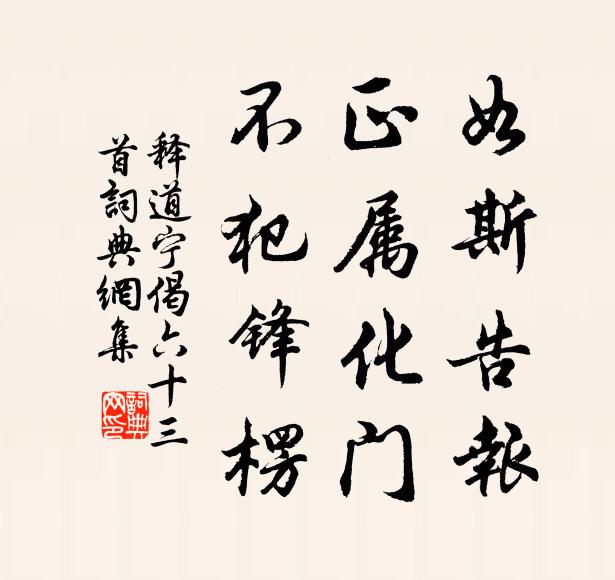 如斯告報
正属化门
不犯锋楞
释道宁偈六十三
首詞典網集
詞典网印